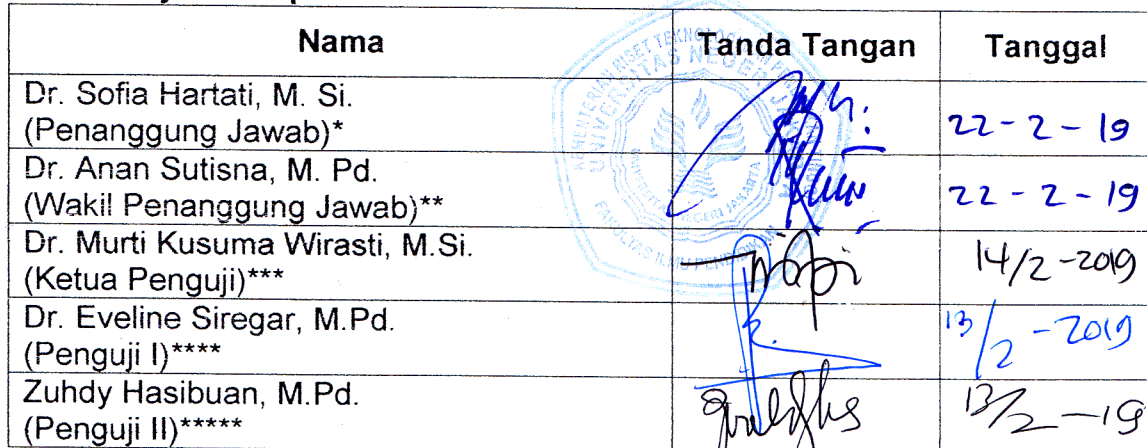 Nama Tanda Tangan Tanggal
Dr. Sofia Hartati, M. Si.
(Penanggung Jawab)* 22 - 2 - 19
Dr. Anan Sutisna, M. Pd.
(Wakil Penanggung Jawab)** 22 - 2 - 19
Dr. Murti Kusuma Wirasti, M.Si.
(Ketua Penguji)*** 14/2 - 2019
Dr. Eveline Siregar, M.Pd.
(Penguji I)**** 13/2 - 2019
Zuhdy Hasibuan, M.Pd.
(Penguji II)***** 13/2 - 19
UNIVERSITAS NEGERI JAKARTA
FAKULTAS ILMU PENDIDIKAN